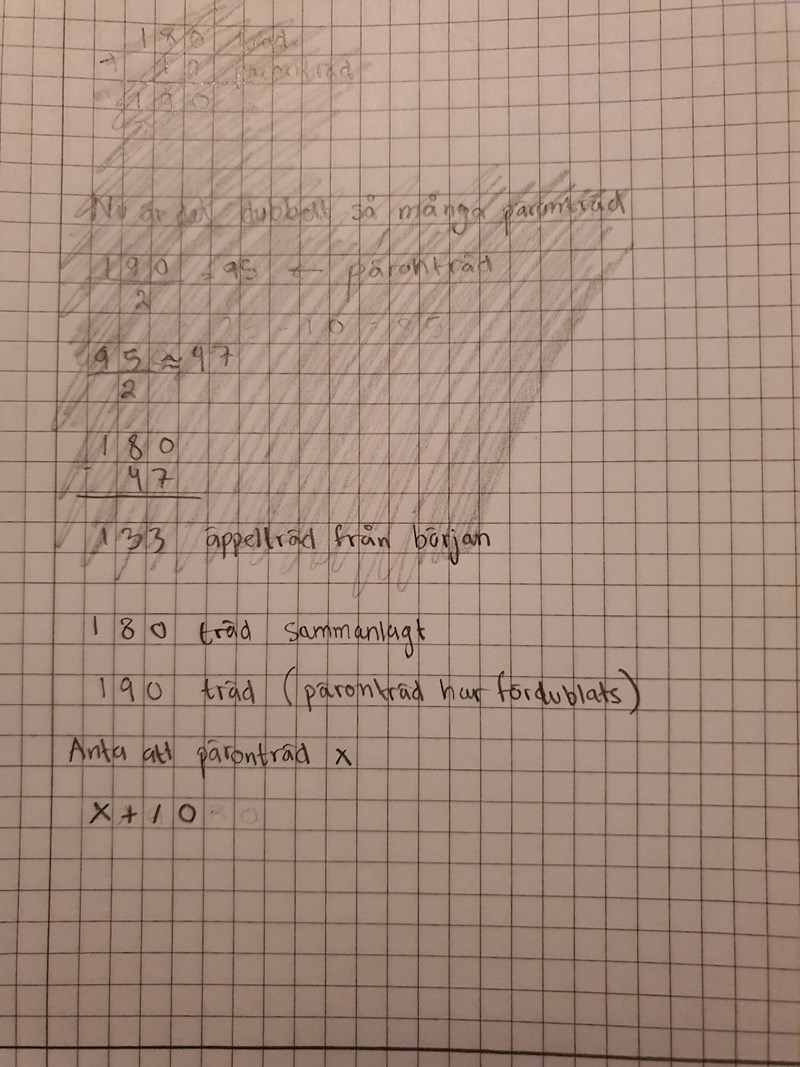 180 träd
+ 10 päronträd
190
Nu är det dubbelt så många päronträd
190 = 95 ← päronträd
2
95 - 10 = 85
95 ≈ 47
2
180
- 47
133 äppelträd från början
180 träd sammanlagt
190 träd (päronträd har fördublats)
Anta att päronträd x
x + 10